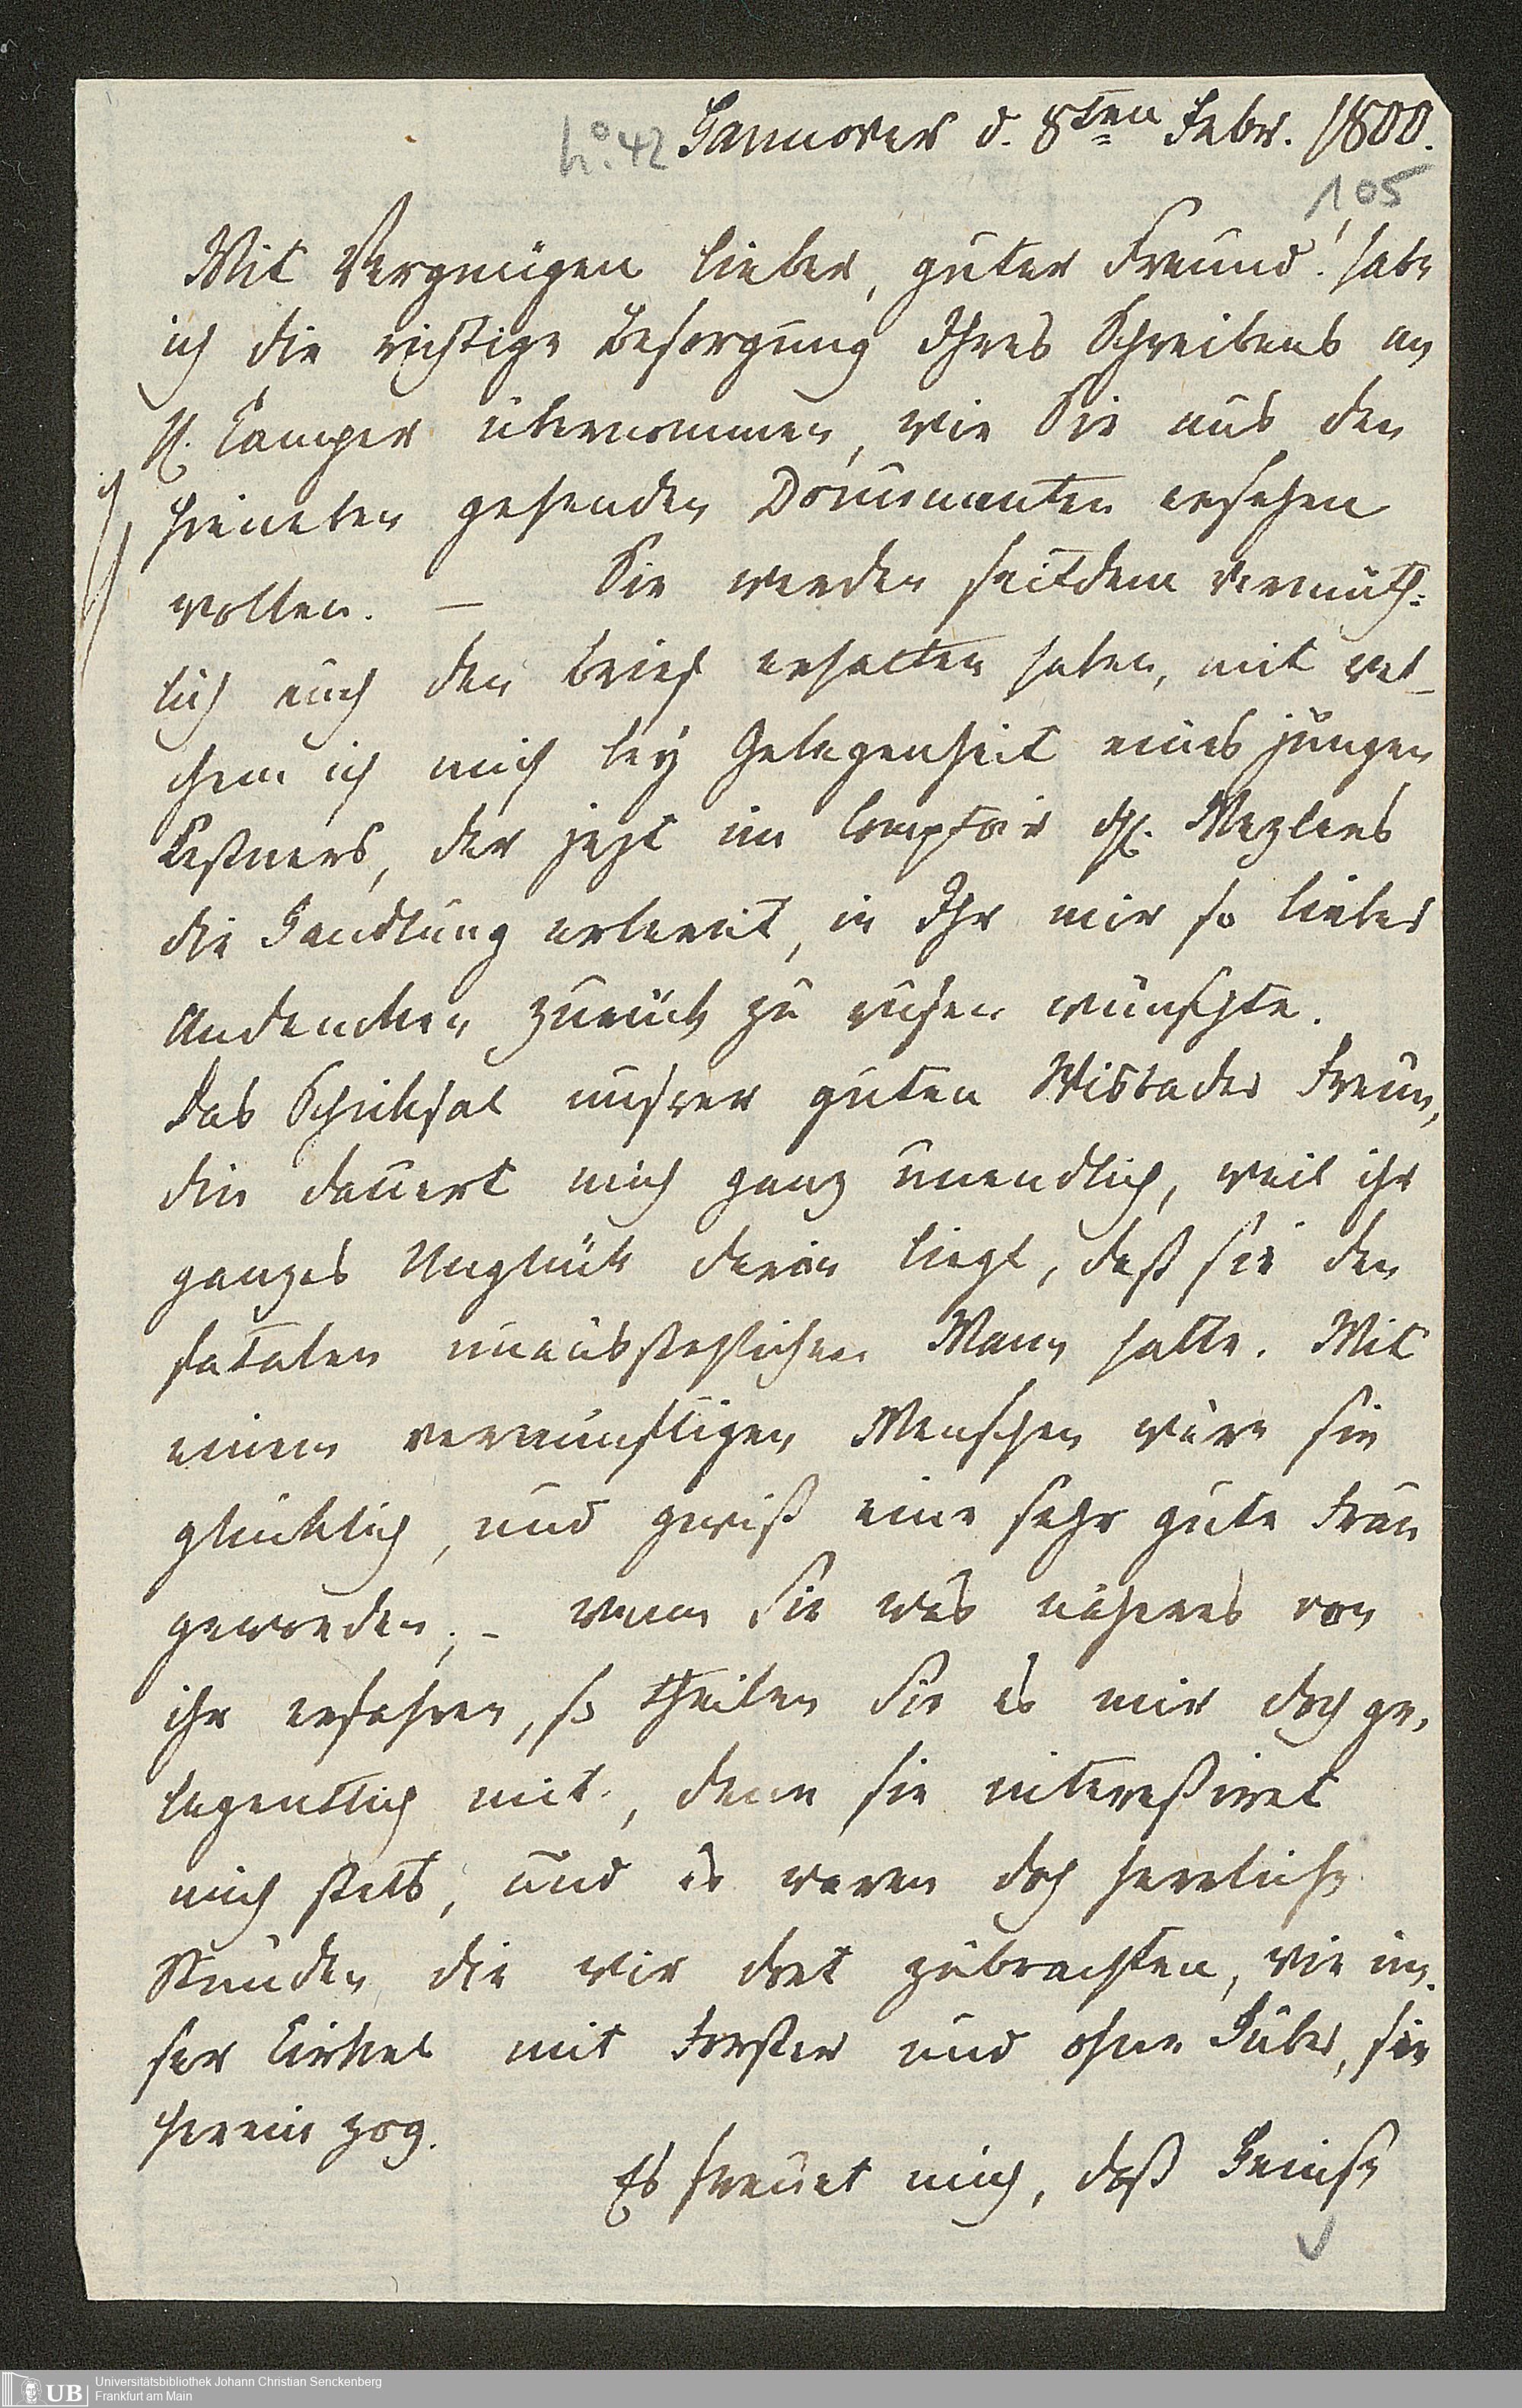 No. 42 Hannover d. 8ten Febr. 1800.
105
Mit Vergnügen lieber, guter Freund! habe
ich die richtige Besorgung Ihres Schreibens an
H. Camper übernommen, wie Sie aus den
hieneben gehenden Documenten ersehen
wollen. — Sie werden seitdem vermuth=
lich auch den Brief erhalten haben, mit wel-
chem ich mich bey Gelegenheit eines jungen
Kestners, der jezt im Comptoir H. Mezlers
die Handlung erlernt, in Ihr mir so liebes
Andencken zurück zu rufen wünschte.
Das Schiksal unsrer guten Wisbader Freun,
din dauert mich ganz unendlich, weil ihr
ganzes Unglück darin liegt, daß sie den
fatalen unausstehlichen Mann hatte. Mit
einem vernünftigen Menschen wäre sie
glücklich, und gewiß eine sehr gute Frau
geworden; - wenn Sie was näheres von
ihr erfahren, so theilen Sie es mir doch ge,
legentlich mit, denn sie interessiret
mich stets, und es waren doch herrliche
Stunden die wir dort zubrachten, wie un,
ser Cirkel mit Forster und ohne Huber, sie
herein zog.
Es freuet mich, daß Heinse
UB
Universitätsbibliothek Johann Christian Senckenberg
Frankfurt am Main